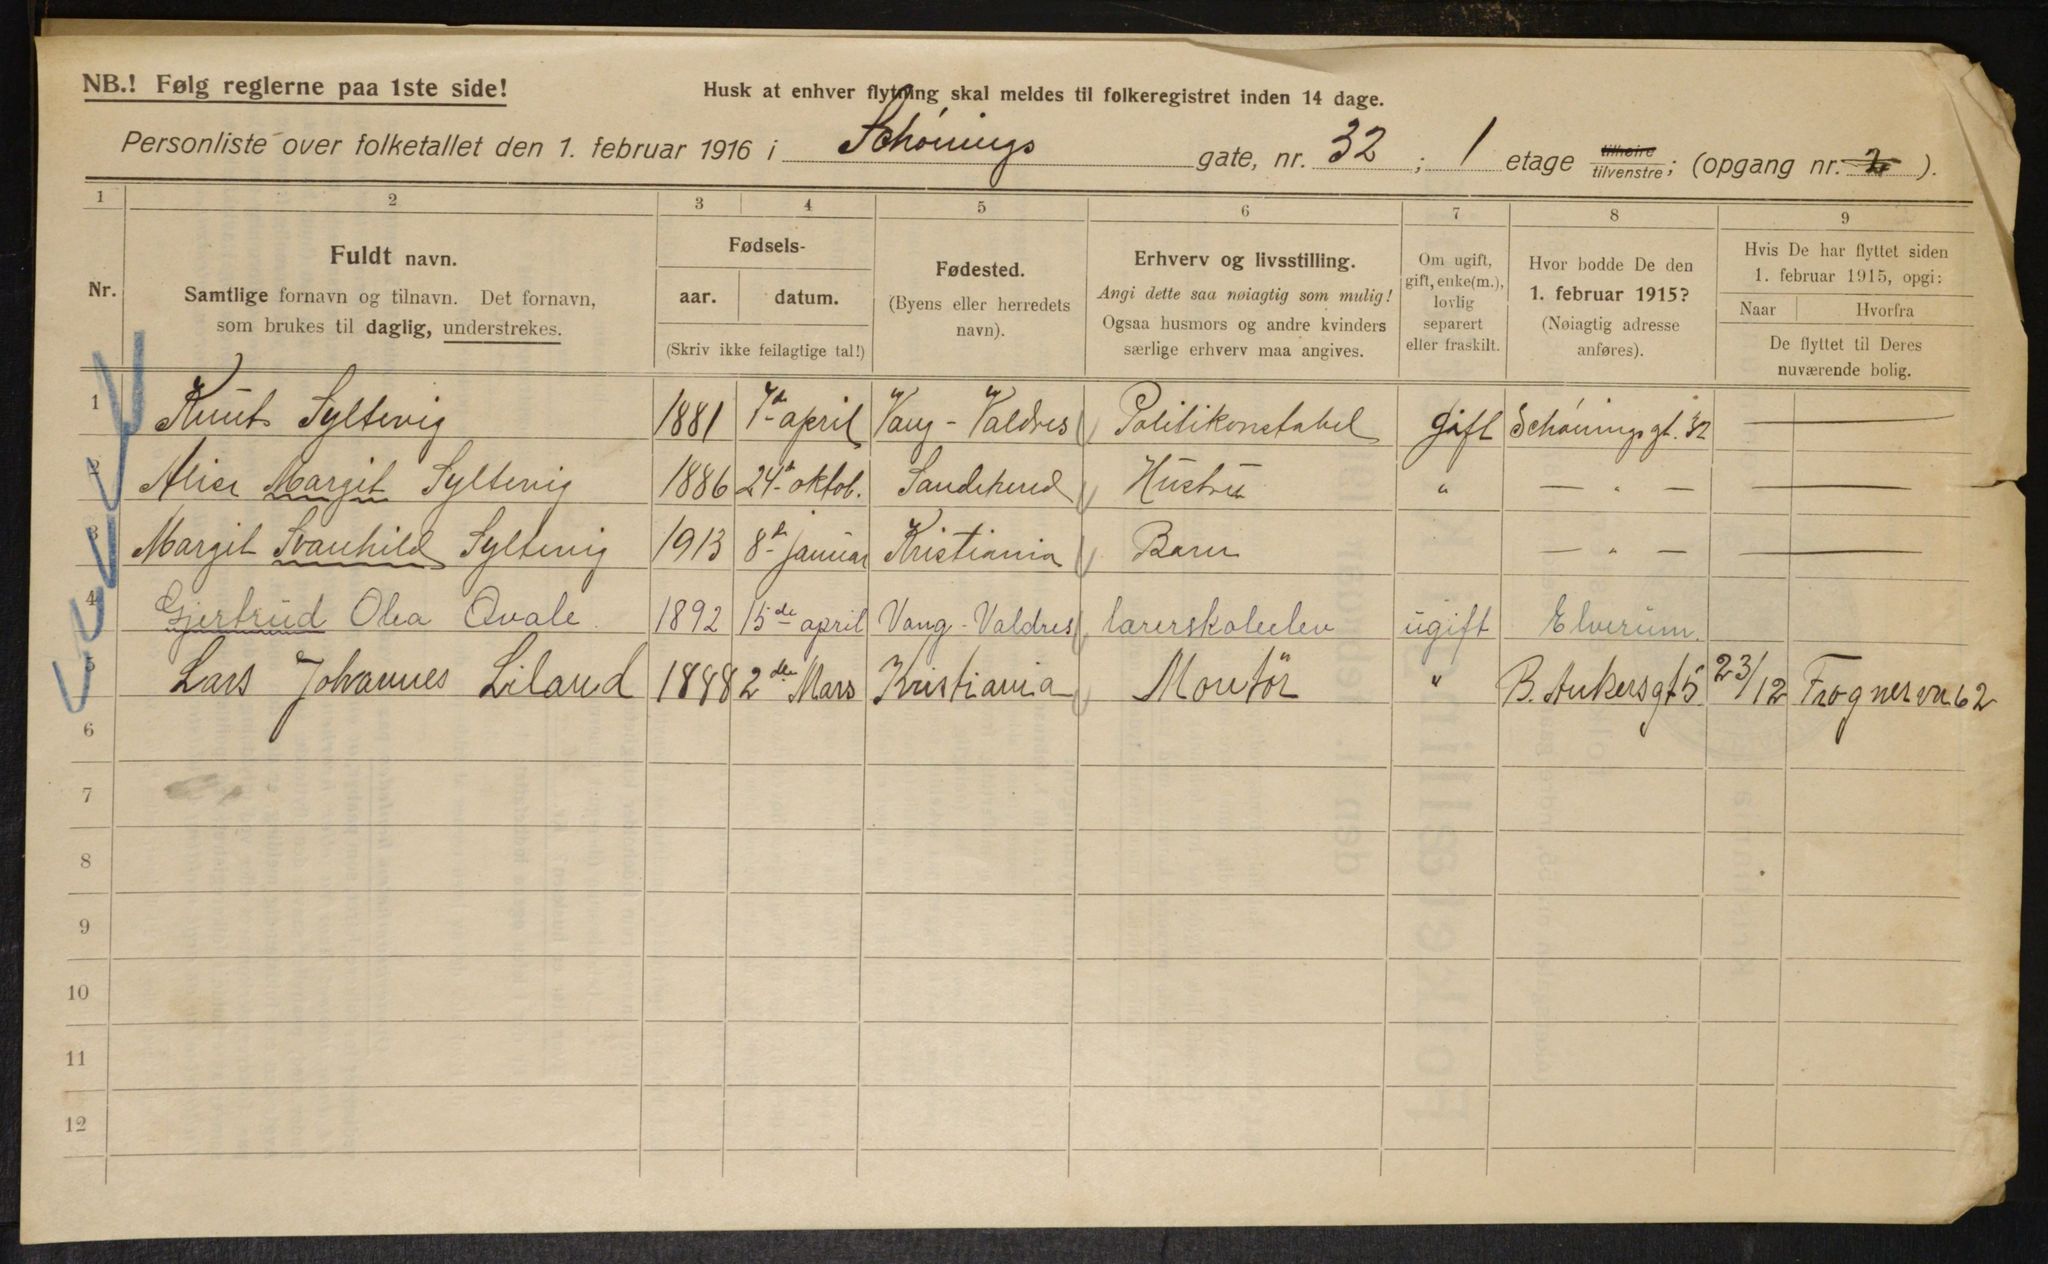 NB.! Følg reglerne paa 1ste side!
Husk at enhver flytning skal meldes til folkeregistret inden 14 dage.
Personliste over folketallet den 1. februar 1916 i Schønings gate, nr. 32 ; 1 etage tilhøire tilvenstre ; (opgang nr. 2 ).
1 2 3 4 5 6 7 8 9
Nr.
Fuldt navn.
Samtlige fornavn og tilnavn. Det fornavn,
som brukes til daglig, understrekes.
Fødsels-
aar. datum.
(Skriv ikke feilagtige tal!)
Fødested.
(Byens eller herredets
navn).
Erhverv og livsstilling.
Angi dette saa nøiagtig som mulig!
Ogsaa husmors og andre kvinders
særlige erhverv maa angives.
Om ugift,
gift, enke(m.),
lovlig
separert
eller fraskilt.
Hvor bodde De den
1. februar 1915?
(Nøiagtig adresse
anføres).
Hvis De har flyttet siden
1. februar 1915, opgi:
Naar Hvorfra
De flyttet til Deres
nuværende bolig.
1 Knut Syltevig 1881 7de april Vang - Valdres Politikonstabel gift Schøningsgt. 32 — —
2 Alice Margit Syltevig 1886 24de oktob. Sandeherred Hustru " — " — — —
3 Margit Svanhild Syltevig 1913 8de januar Kristiania Barn — " — — —
4 Gjertrud Olea Qvale. 1892 15de april Vang - Valdres lærerskoleelev ugift Elverum.
5 Lars Johannes Liland 1888 2de Mars Kristiania Montör " B. Ankersgt 5. 23/12 Frognervn 62
6
7
8
9
10
11
12